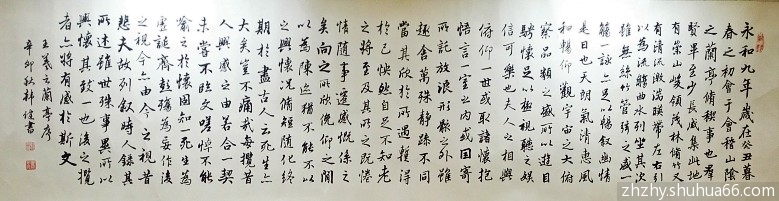 永和九年歲在癸丑暮
春之初會于會稽山陰
之蘭亭脩稧事也羣
賢畢至少長咸集此地
有崇山峻領茂林脩竹又
有清流激湍暎帶左右引
以為流觴曲水列坐其次
雖無絲竹管弦之盛一
觴一詠亦足以暢叙幽情
是日也天朗氣清惠風
和暢仰觀宇宙之大俯
察品類之盛所以遊目
騁懷足以極視聽之娛
信可樂也夫人之相與
俯仰一世或取諸懷抱
悟言一室之內或因寄
所託放浪形骸之外雖
趣舍萬殊靜躁不同
當其欣於所遇暫得
於己怏然自足不知老
之將至及其所之既惓
情隨事遷感慨係之
矣向之所欣俛仰之間
以為陳迹猶不能不以
之興懷況脩短隨化終
期於盡古人云死生亦
大矣豈不痛哉每攬昔
人興感之由若合一契
未嘗不臨文嗟悼不能
喻之於懷固知一死生為
虛誕齊彭殤為妄作後
之視今亦由今之視昔
悲夫故列叙時人錄其
所述雖世殊事異所以
興懷其致一也後之攬
者亦將有感於斯文
王羲之蘭亭序
辛卯秋林健書
zhzhy.shuhua66.com